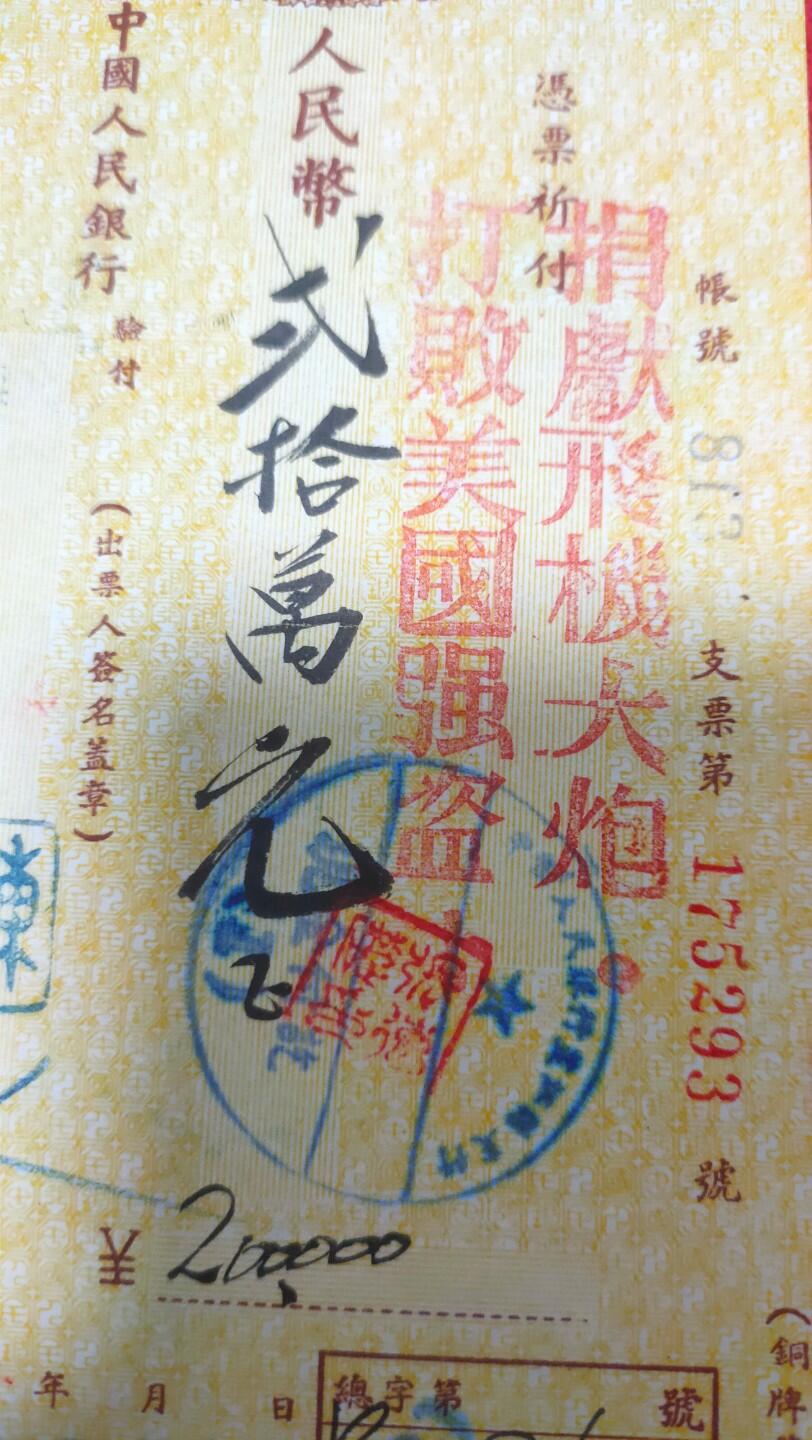 帳號
支票第 175293 號
憑票祈付
捐獻飛機大炮
打敗美國强盗
人民幣
貳拾萬元正
中國人民銀行
驗付
(出票人簽名蓋章)
¥ 200,000
年 月 日
總字第 號
(銅牌